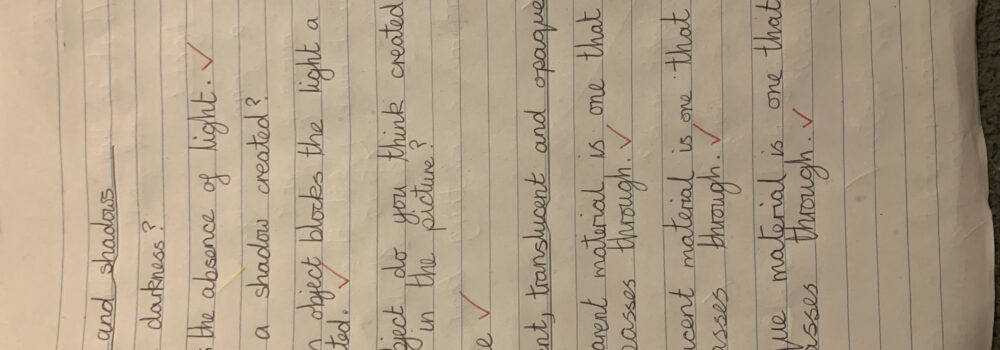 and shadows
darkness?
the absence of light.
a shadow created?
object blocks the light a
ted.
ject do you think created
in the picture?
e
nt, translucent and opaque
arent material is one that
asses through.
ucent material is one that
asses through.
que material is one that
asses through.